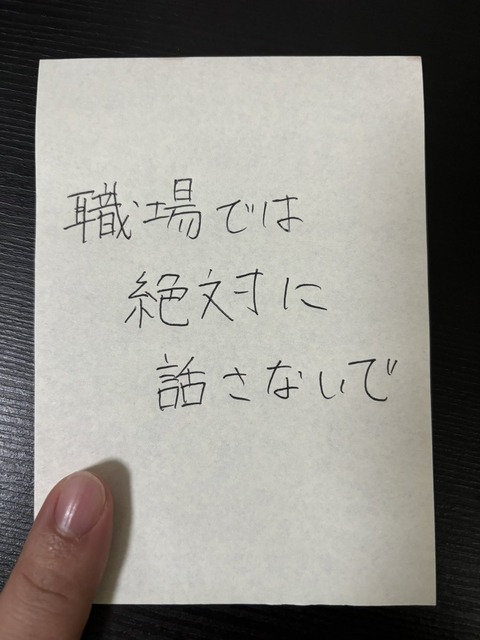 職場では
絶対に
話さないで